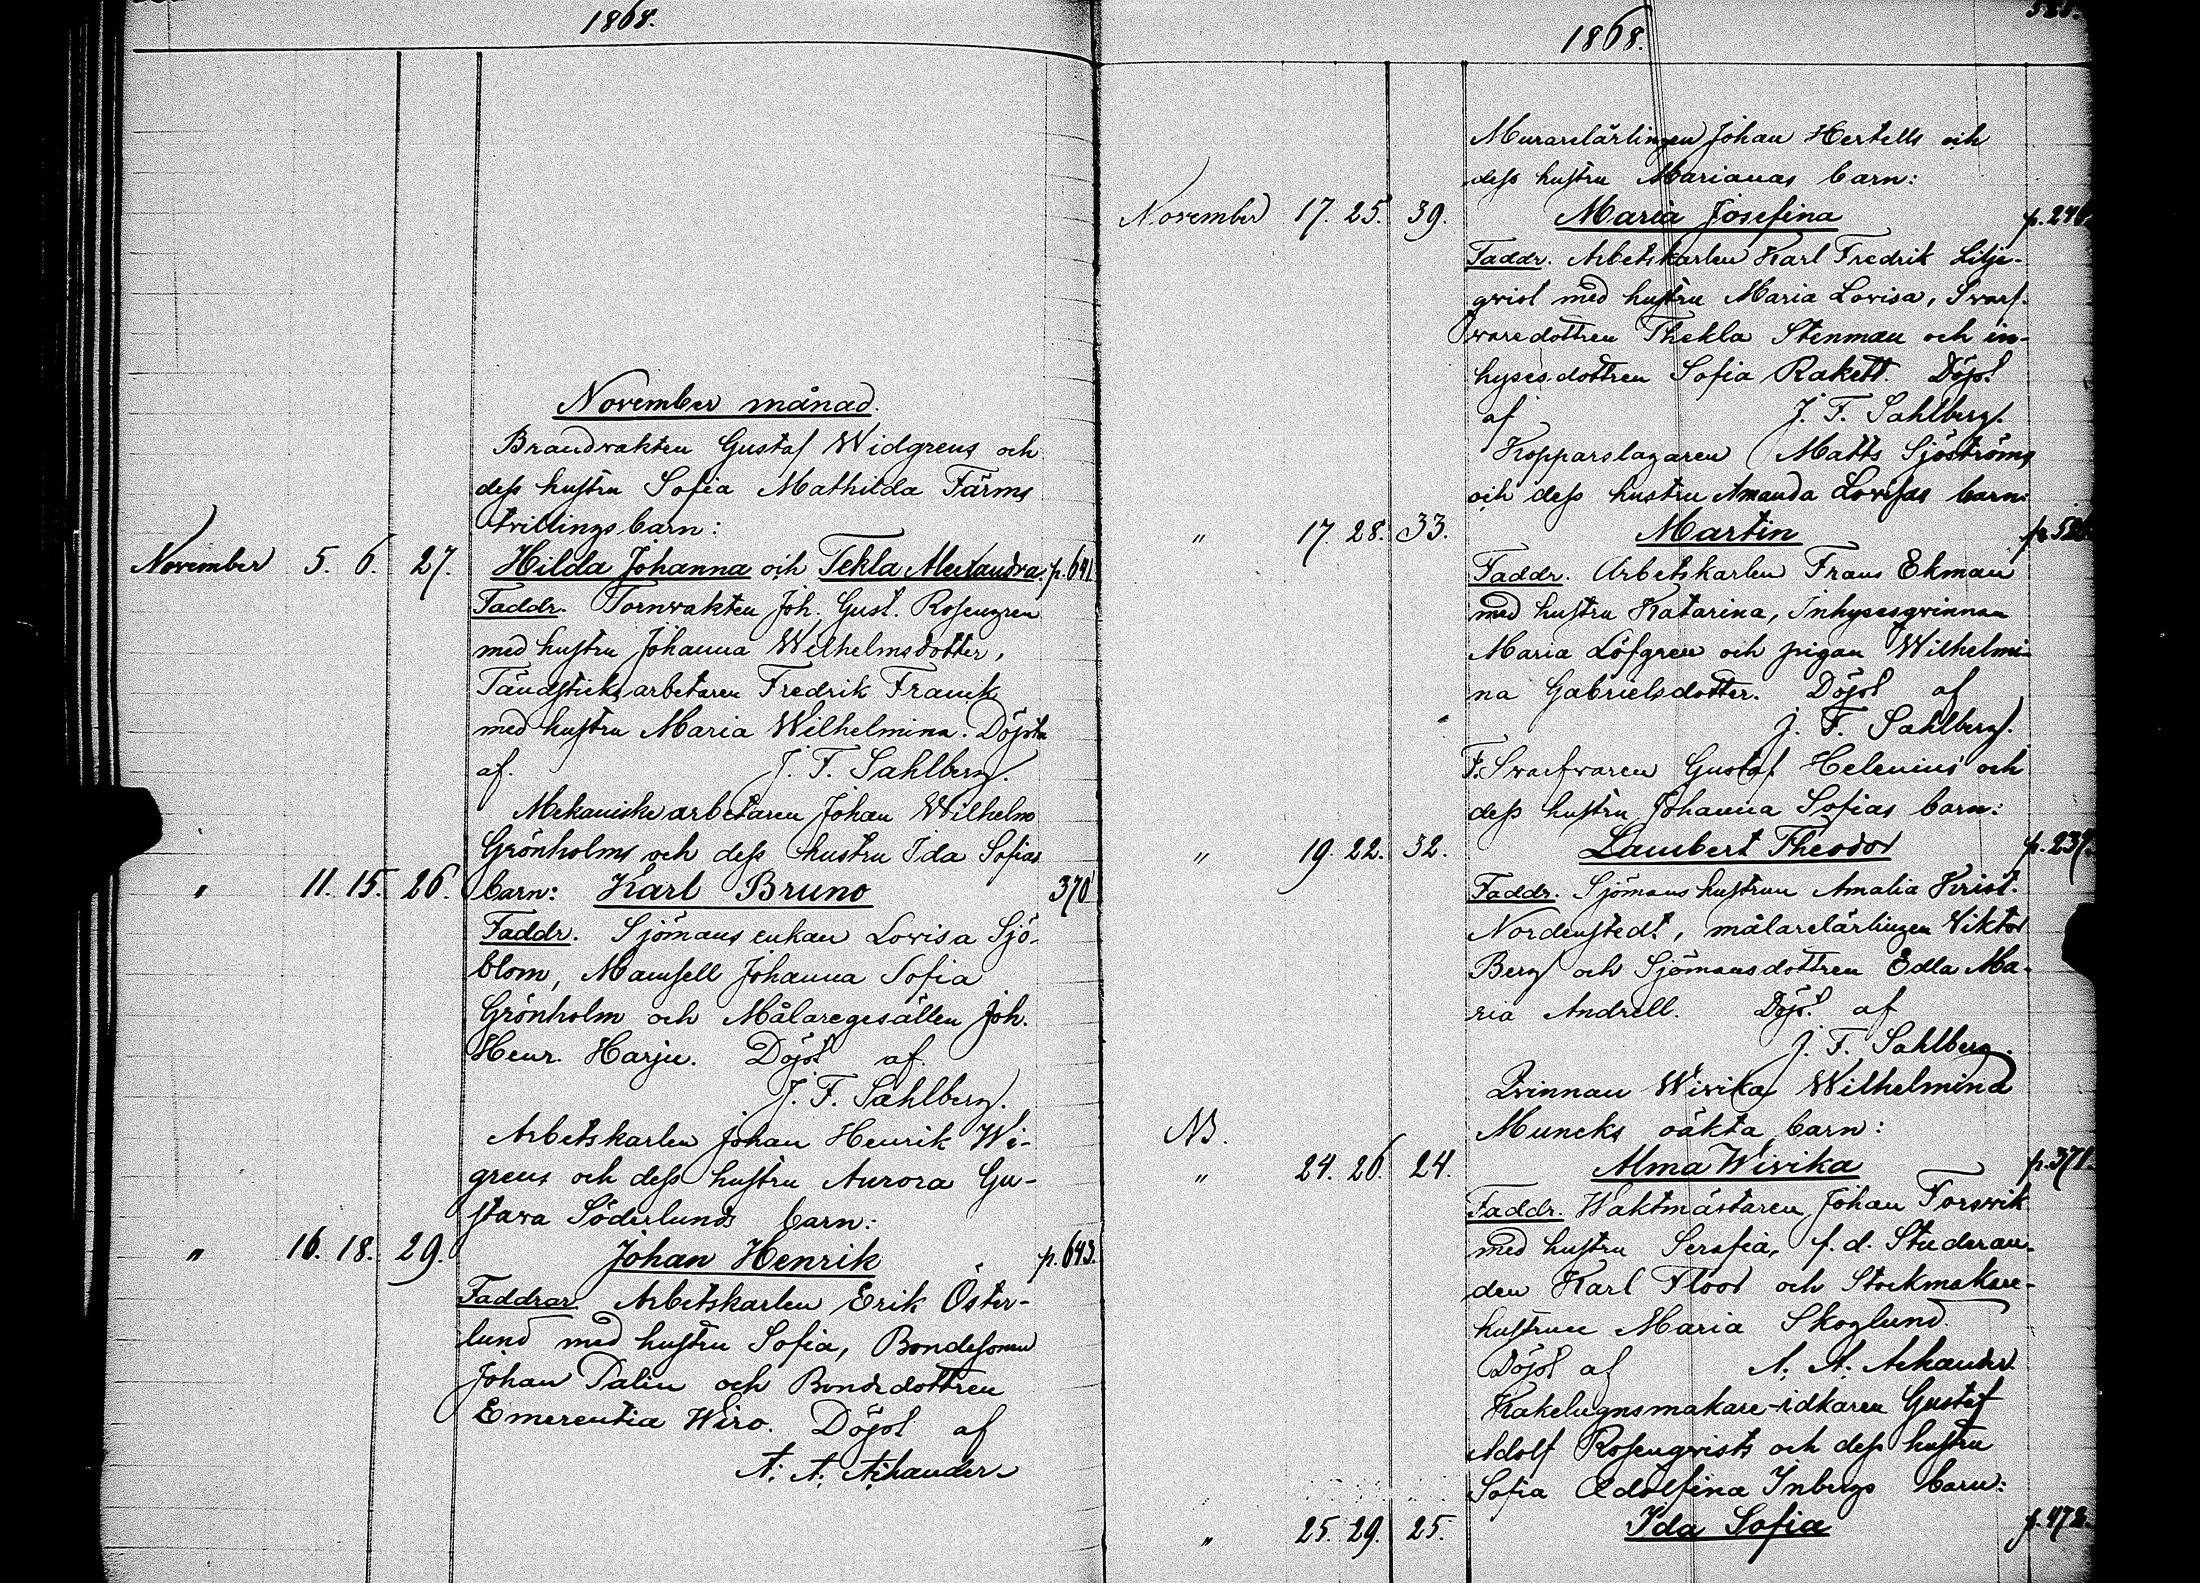 1868.
November månad.
Brandvakten Gustaf Widgrens och
dess hustru Sofia Mathilda Färms
tvillingsbarn:
November 5. 6. 27. Hilda Johanna och Tekla Alexandra. p. 641
Faddr. Tornvakten Joh. Gust. Rosengren
med hustru Johanna Wilhelmsdotter,
Tändsticksarbetaren Fredrik Franck
med hustru Maria Wilhelmina. Döpta
af. J. F. Sahlberg.
Mekaniske arbetaren Johan Wilhelm
Grönholms och dess hustru Ida Sofias
" 11. 15. 26. barn: Karl Bruno 370
Faddr. Sjömans enkan Lovisa Sjö-
blom, Mamsell Johanna Sofia
Grönholm och Målaregesällen Joh.
Henr. Harju. Döpt af
J. F. Sahlberg.
Arbetskarlen Johan Henrik Wi-
grens och dess hustru Aurora Gu-
stava Söderlunds barn:
" 16. 18. 29. Johan Henrik p. 643.
Faddrar Arbetskarlen Erik Öster-
lund med hustru Sofia, Bondesonen
Johan Palin och Bondedottren
Emerentia Wiro. Döpt af
A. A. Aihander
1868.
Murarelärlingen Johan Hertells och
dess hustru Marianas barn:
November 17. 25. 39. Maria Josefina p. 246
Faddr. Arbetskarlen Karl Fredrik Lilje-
qvist med hustru Maria Lovisa, Svarf-
varedottren Thekla Stenman och in-
hysesdottren Sofia Rakett. Döpt
af J. F. Sahlberg.
Kopparslagaren Matts Sjöströms
och dess hustru Amanda Lovisas barn:
" 17. 28. 33. Martin
Faddr. Arbetskarlen Frans Ekman
med hustru Katarina, Inhysesqvinnan
Maria Löfgren och pigan Wilhelmi-
na Gabrielsdotter. Döpt af
J. F. Sahlberg.
F. Svarfvaren Gustaf Helenius och
dess hustru Johanna Sofias barn:
" 19. 22. 32. Lambert Theodor p. 237.
Faddr. Sjömans hustrun Amalia Krist.
Nordenstedt, målarelärlingen Viktor
Berg och Sjömansdottren Edla Ma-
ria Andrell. Döpt af
J. F. Sahlberg.
Qvinnan Wivika Wilhelmina
NB. Muncks oäkta barn:
" 24. 26. 24. Alma Wivika p. 371.
Faddr. Waktmästaren Johan Forsvik
med hustru Serafia, f. d. Studeran-
den Karl Floor och Stockmakare-
hustrun Maria Skoglund.
Döpt af A. A. Aihander
Kakelugnsmakare-idkaren Gustaf
Adolf Rosenqvists och dess hustru
Sofia Adolfina Inbergs barn:
" 25. 29. 25. Ida Sofia p. 472.